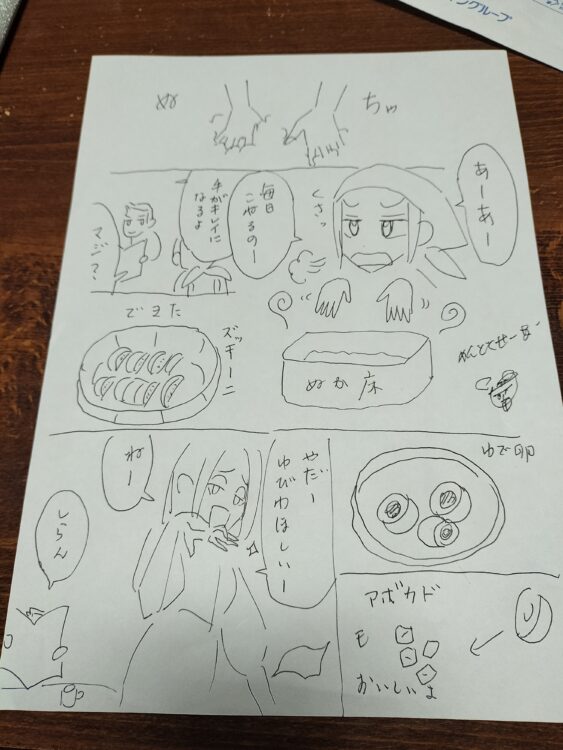 ングループ
ぬ
ちゅ
あーあー
くさっ
毎日
こせるのー
手がキレイに
なるよ
マジで?
ぬか床
めんとくせーなー
できた
ズッキーニ
ゆで卵
やだー
ゆびわほしいー
ねー
しらん
アボカド
も
おいしいよ